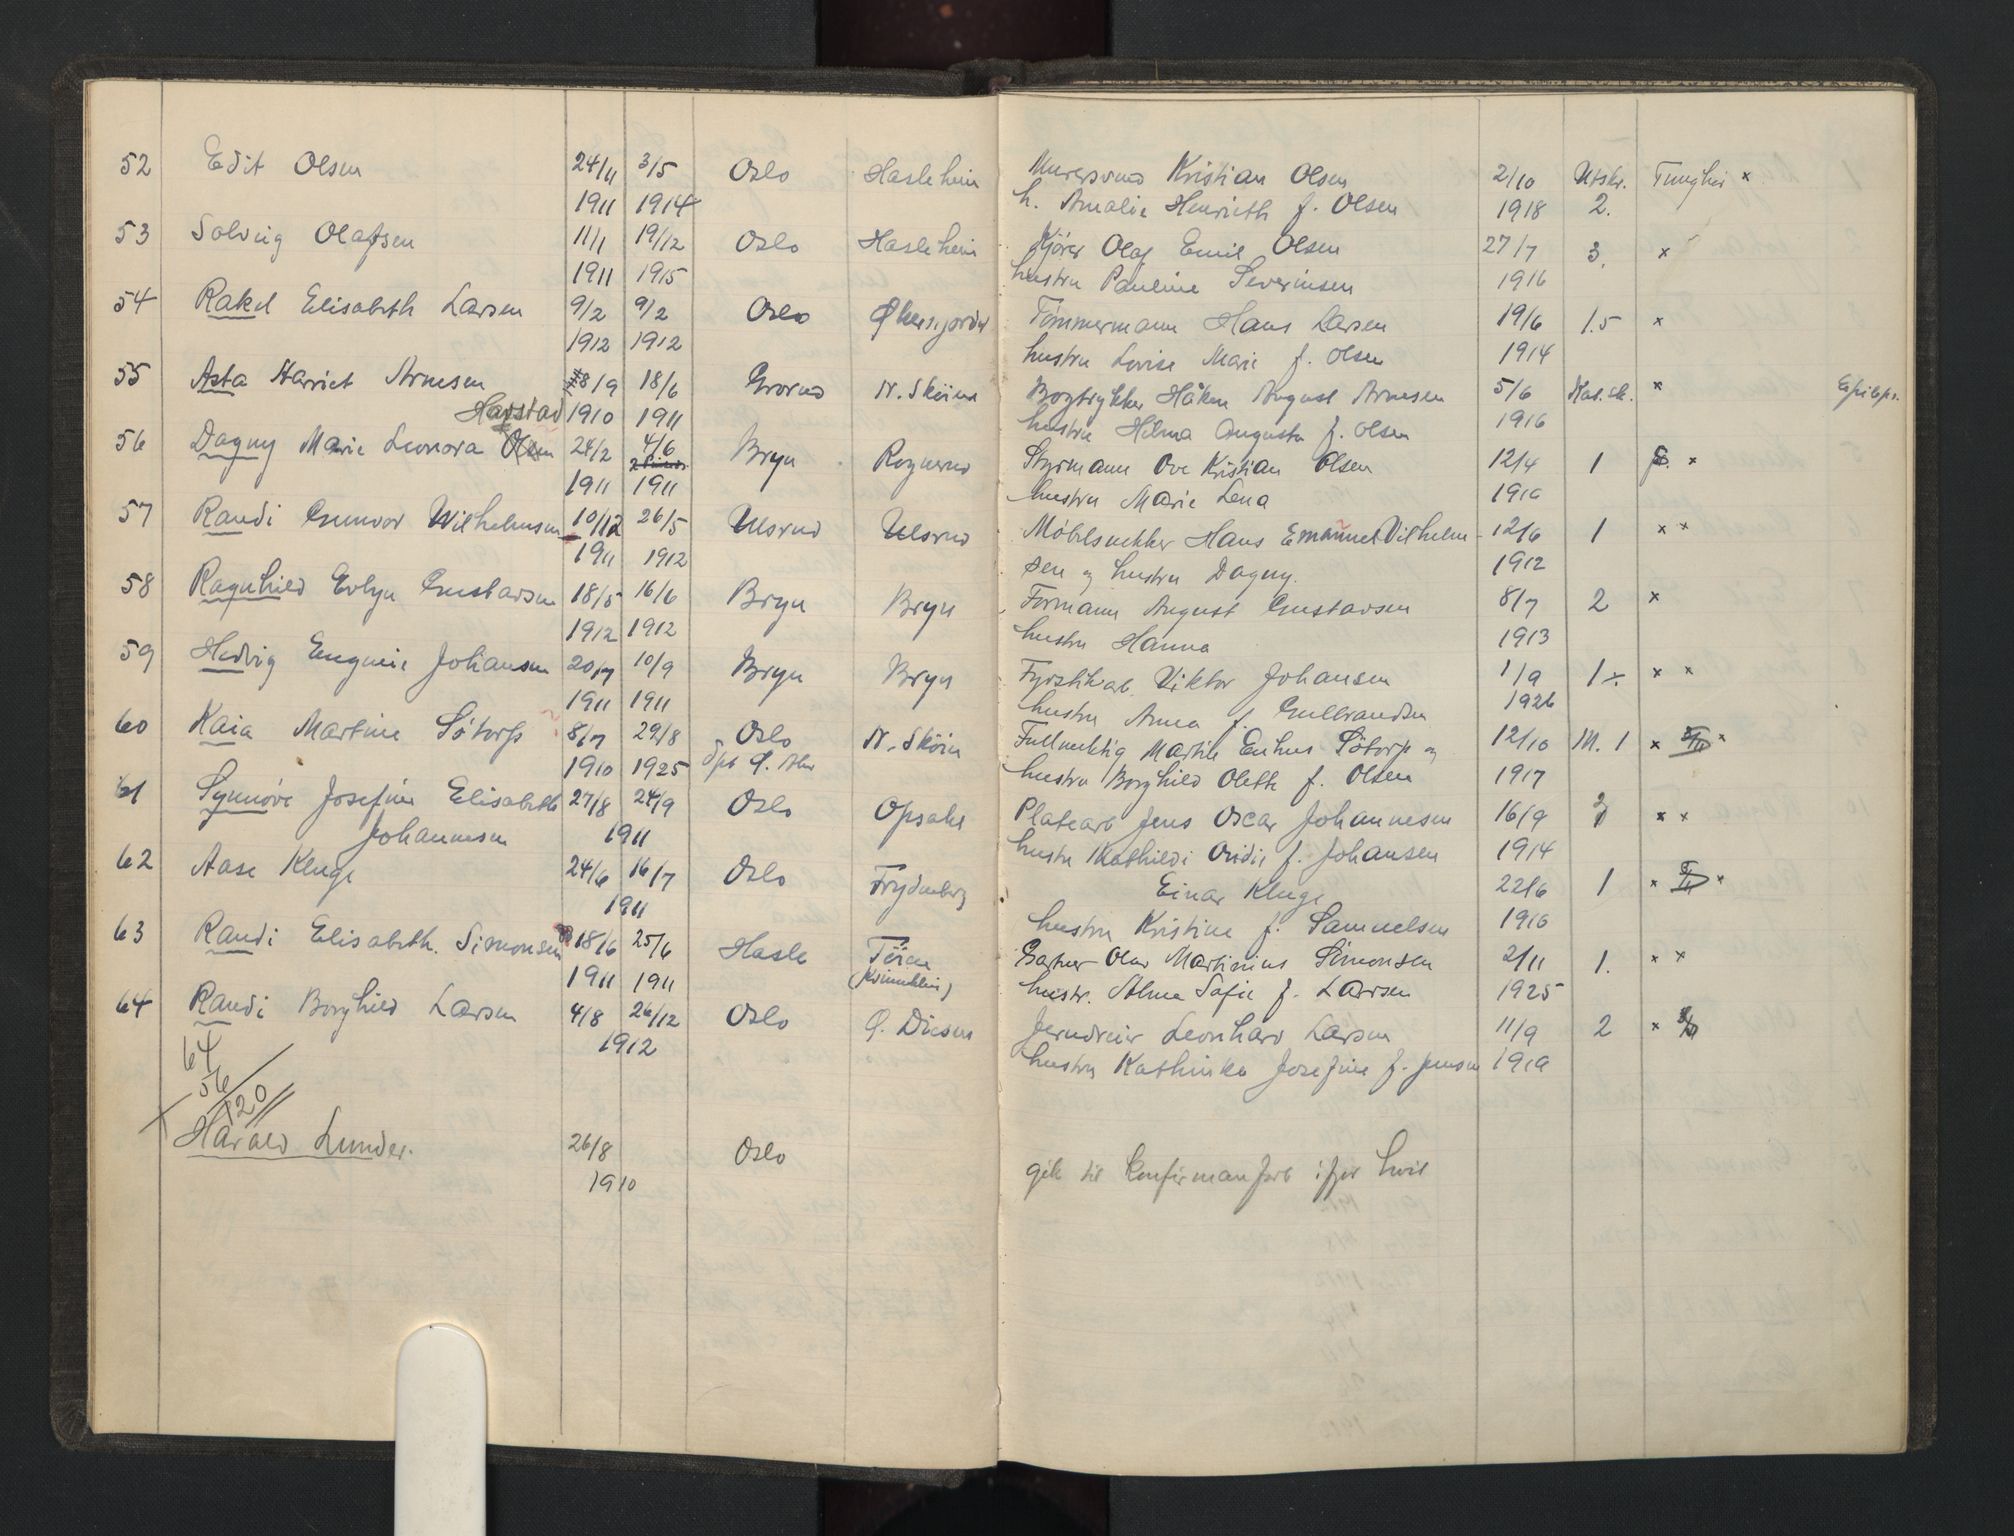 52 Edit Olsen 24/11 3/5 Oslo Hasleheim Kristian Olsen 2/10 Utskr. Tunghør x
1911 1914 h. Amalie Henriette f. Olsen 1918 2.
53 Solveig Olafsen 11/1 19/12 Oslo Hasleheim Kjører Olaf Emil Olsen 27/7 3. x
1911 1915 hustru Pauline Severinsen 1916
54 Rakel Elisabeth Larsen 9/2 9/2 Oslo Tømmermann Hans Larsen 19/6 1.5 x
1912 1912 hustru Lovise Marie f. Olsen 1914
55 Asta Harriet Arnesen 8/9 18/6 Grorud N. Skøien Bogtrykker Håken August Arnesen 5/6 x
Harstad 1910 1911 hustru Hilma Augusta f. Olsen 1916
56 Dagny Marie Leonora Olsen 24/2 4/6 Bryn Rognerud Styrmann Ove Kristian Olsen 12/4 1 x
1911 1911 hustru Marie Lena
57 Randi Gunvor Wilhelmsen 10/12 26/5 Ulsrud Ulsrud Møbelsnekker Hans Emanuel Vilhelm- 12/6 1 x x
1911 1912 sen og hustru Dagny. 1912
58 Ragnhild Evlyn Gustavsen 18/5 16/6 Bryn Bryn Formann August Gustavsen 8/7 2 x
1912 1912 hustru Hanna 1913
59 Hedvig Eugenie Johansen 20/7 10/9 Bryn Bryn Fyrstikarb. Viktor Johansen 1/9 1 x x
1911 1911 hustru Anna f. Gulbrandsen 1926
60 Kaia Martine Søtorp 8/7 29/8 Oslo N. Skøien Fullmektig Martin Søtorp og 12/10 M. 1 x x
1910 1925 hustru Borghild Olette f. Olsen 1917
61 Synnøve Josefine Elisabeth 27/8 24/9 Oslo Opsahl Platearb Jens Oscar Johannesen 16/9 x x
Johannesen 1911 hustru Mathilde f. Johansen 1914
62 Aase Kluge 24/6 16/7 Oslo Frydenberg Einar Kluge 22/6 1 x x
1911 hustru Kristine f. Samuelsen
63 Randi Elisabeth. Simonsen 18/6 25/6 Hasle Tøien Gartner Olav Martinius Simonsen 2/11 1. x x
1911 1911 hustr. Alma Sofie f. Larsen 1925
64 Randi Borghild Larsen 4/8 26/12 Oslo Jerndreier Leonhard Larsen 11/9 2 x
1912 hustru Kathinka Josefine f. Jensen
64
56
120
Harald Lunder. 26/8 Oslo
1910